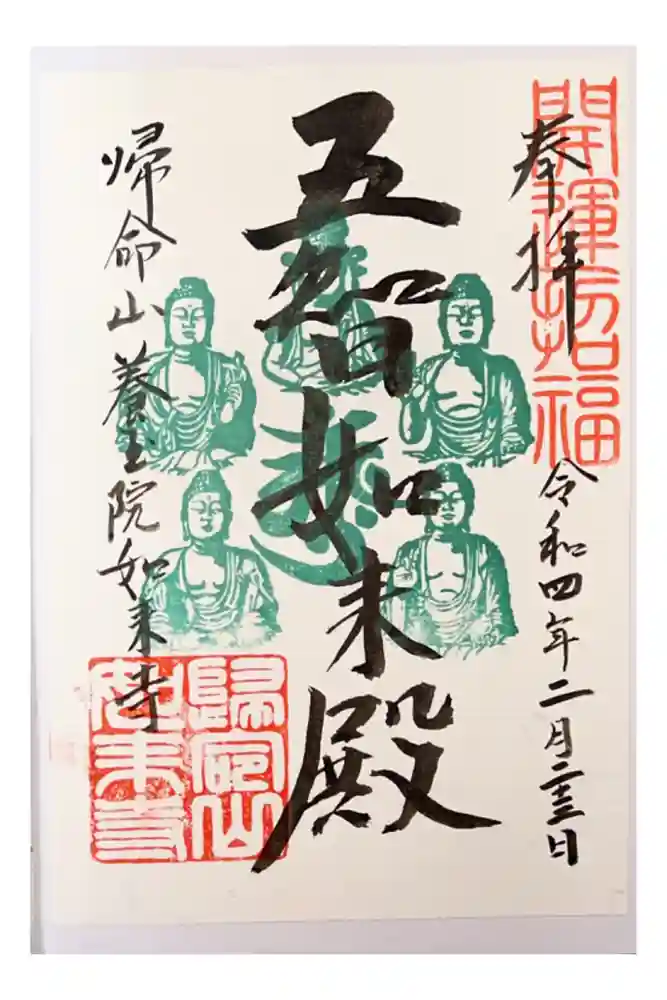 開運招福
奉拝
令和四年二月二十三日
五智如来殿
帰命山養玉院如来寺
歸命山
如来寺